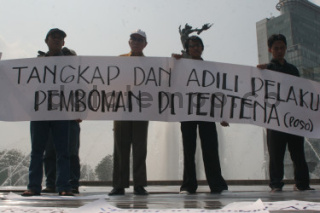 TANGKAP DAN ADILI PELAKU
PEMBOMAN DI TENTENA (POSO)